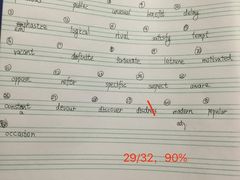 public unusual benefit delay
emphasize logical rival satisfy tempt
vacant definite fortunate leisure motivated
oppose refer specific suspect aware
constant devour discover modern popular
adj
occasion
29/32, 90%